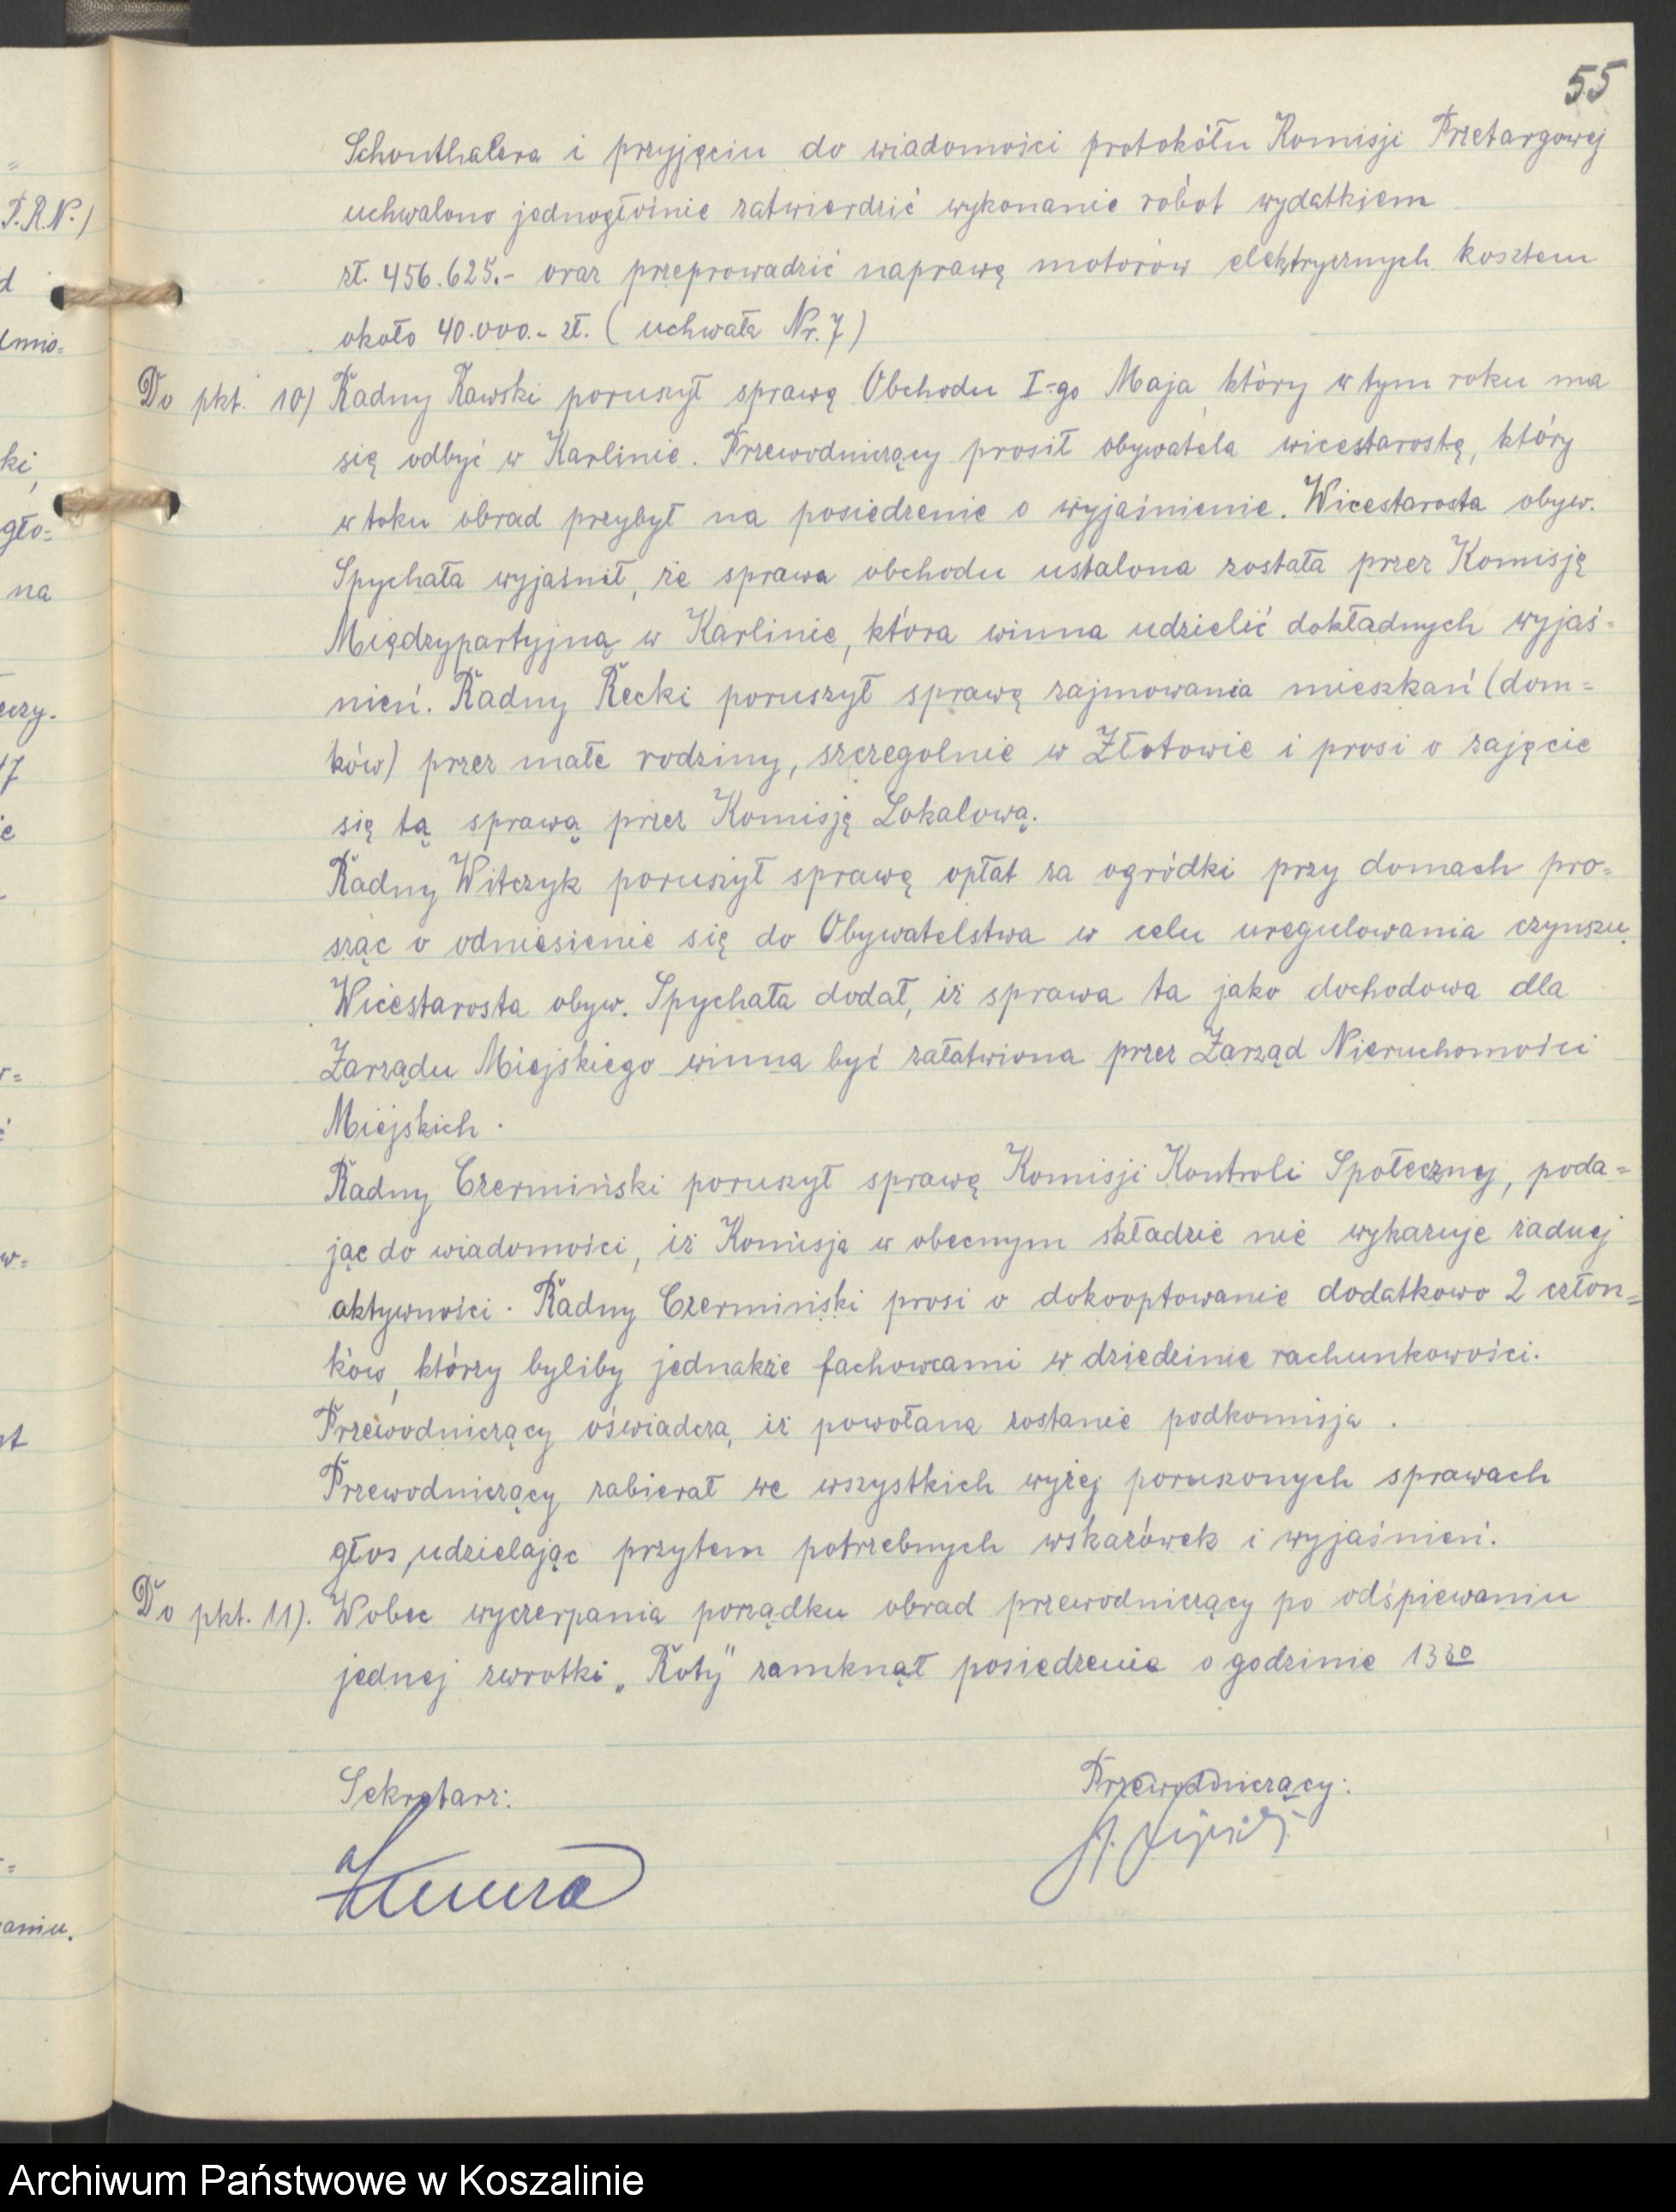 55
Schonthalera i przyjęciu do wiadomości protokółu Komisji Przetargowej
uchwalono jednogłośnie zatwierdzić wykonanie robót wydatkiem
zł. 456.625.- oraz przeprowadzić naprawę motorów elektrycznych kosztem
około 40.000.- zł. ( uchwała Nr. 7 )
Do pkt. 10) Radny Rawski poruszył sprawę Obchodu I-go Maja, który w tym roku ma
się odbyć w Karlinie. Przewodniczący prosił obywatela wicestarostę, który
w toku obrad przybył na posiedzenie o wyjaśnienie. Wicestarosta obyw.
Spychała wyjaśnił, że sprawa obchodu ustalona została przez Komisję
Międzypartyjną w Karlinie, która winna udzielić dokładnych wyjaś=
nień. Radny Recki poruszył sprawę zajmowania mieszkań (dom=
ków) przez małe rodziny, szczegolnie w Złotowie i prosi o zajęcie
się tą sprawą przez Komisję Lokalową.
Radny Witczyk poruszył sprawę opłat za ogródki przy domach pro=
sząc o odniesienie się do Obywatelstwa w celu uregulowania czynszu.
Wicestarosta obyw. Spychała dodał, iż sprawa ta jako dochodowa dla
Zarządu Miejskiego winna być załatwiona przez Zarząd Nieruchomości
Miejskich.
Radny Czermiński poruszył sprawę Komisji Kontroli Społecznej, poda=
jąc do wiadomości, iż Komisja w obecnym składzie nie wykazuje żadnej
aktywności. Radny Czermiński prosi o dokooptowanie dodatkowo 2 człon=
ków, którzy byliby jednakże fachowcami w dziedzinie rachunkowości.
Przewodniczący oświadcza, iż powołana zostanie podkomisja.
Przewodniczący zabierał we wszystkich wyżej poruszonych sprawach
głos, udzielając przytem potrzebnych wskazówek i wyjaśnień.
Do pkt. 11). Wobec wyczerpania porządku obrad przewodniczący po odśpiewaniu
jednej zwrotki „Roty" zamknął posiedzenie o godzinie 13 30
Sekretarz: Przewodniczący:
P.R.N.)
d
ki,
gło=
na
17
aniu.
Archiwum Państwowe w Koszalinie